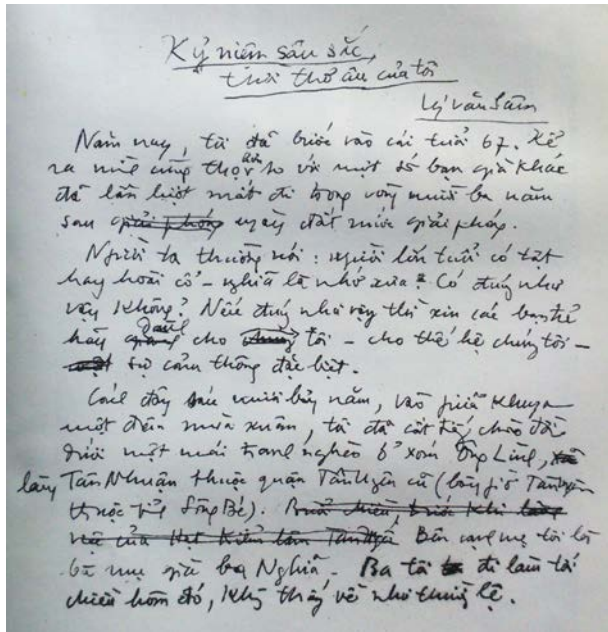 Kỷ niệm sâu sắc,
thời thơ ấu của tôi
Lý Văn Sâm
Năm nay, tôi đã bước vào cái tuổi 67. Kể
ra mình cũng thọ hơn so với một số bạn già khác
đã lần lượt mất đi trong vòng mười ba năm
sau giải phóng ngày đất nước giải phóng.
Người ta thường nói: người lớn tuổi có tật
hay hoài cổ - nghĩa là nhớ xưa? Có đúng như
vậy không? Nếu đúng như vậy thì xin các bạn trẻ
hãy dành cho chúng tôi - cho thế hệ chúng tôi -
một sự cảm thông đặc biệt.
Cách đây sáu mươi bảy năm, vào giữa khuya
một đêm mùa xuân, tôi đã cất tiếng chào đời
dưới một mái tranh nghèo ở xóm Ông Lình,
làng Tân Nhuận thuộc quận Tân Uyên cũ (bây giờ Tân Uyên
thuộc tỉnh Sông Bé). Buổi chiều, trước khi
của Hạt Kiểm lâm Tân Uyên Bên cạnh mẹ tôi là
bà mụ già ba Nghĩa. Ba tôi đi làm từ
chiều hôm đó, không thấy về như thường lệ.